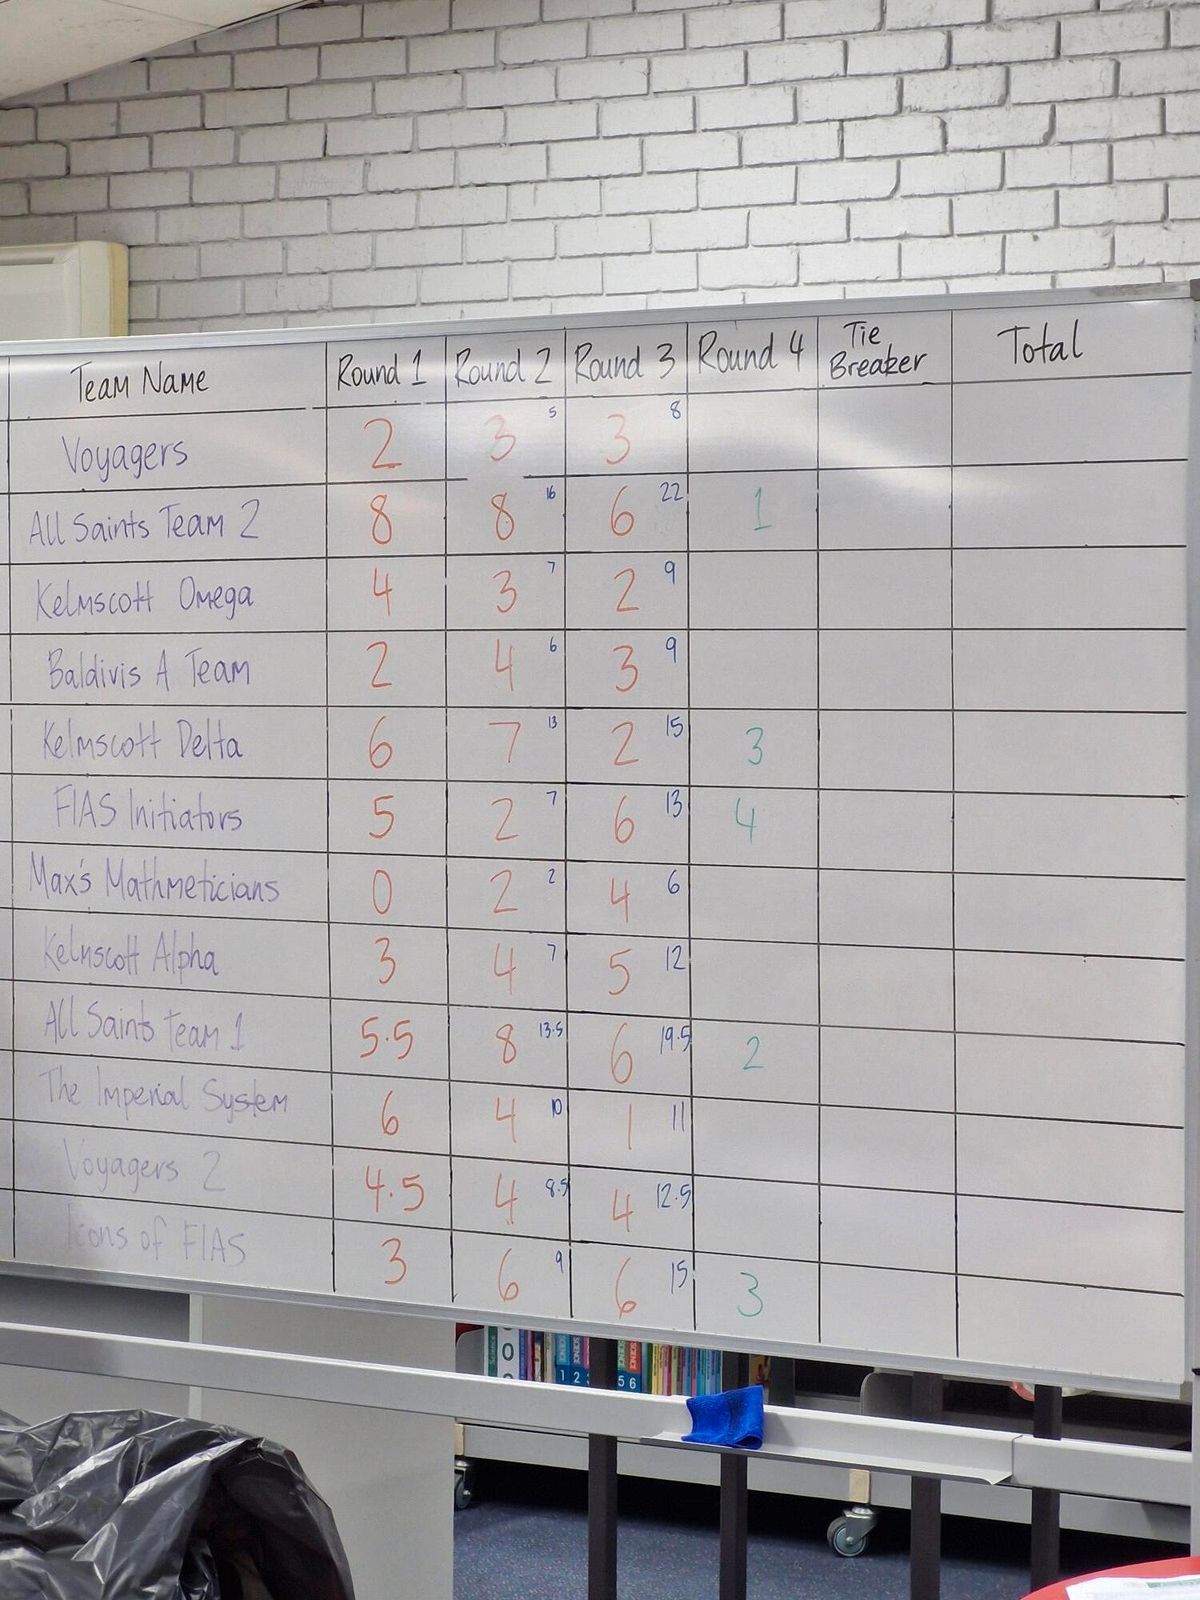 Team Name Round 1 Round 2 Round 3 Round 4 Tie Breaker Total
Voyagers 2 3 5 3 8
All Saints Team 2 8 8 16 6 22 1
Kelmscott Omega 4 3 7 2 9
Baldivis A Team 2 4 6 3 9
Kelmscott Delta 6 7 13 2 15 3
FIAS Initiators 5 2 7 6 13 4
Max's Mathmeticians 0 2 2 4 6
Kelmscott Alpha 3 4 7 5 12
All Saints Team 1 5.5 8 13.5 6 19.5 2
The Imperial System 6 4 10 1 11
Voyagers 2 4.5 4 8.5 4 12.5
Icons of FIAS 3 6 9 6 15 3